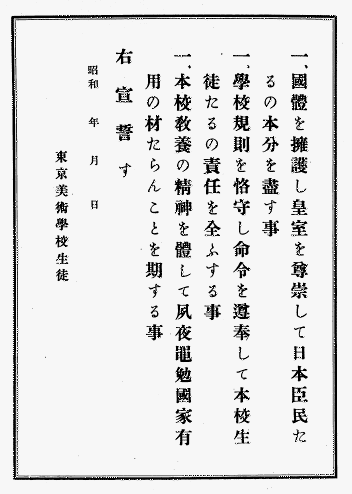 一、國體を擁護し皇室を尊崇して日本臣民た
るの本分を盡す事
一、學校規則を恪守し命令を遵奉して本校生
徒たるの責任を全ふする事
一、本校敎養の精神を體して夙夜黽勉國家有
用の材たらんことを期する事
右宣誓す
昭和　年　月　日
東京美術學校生徒